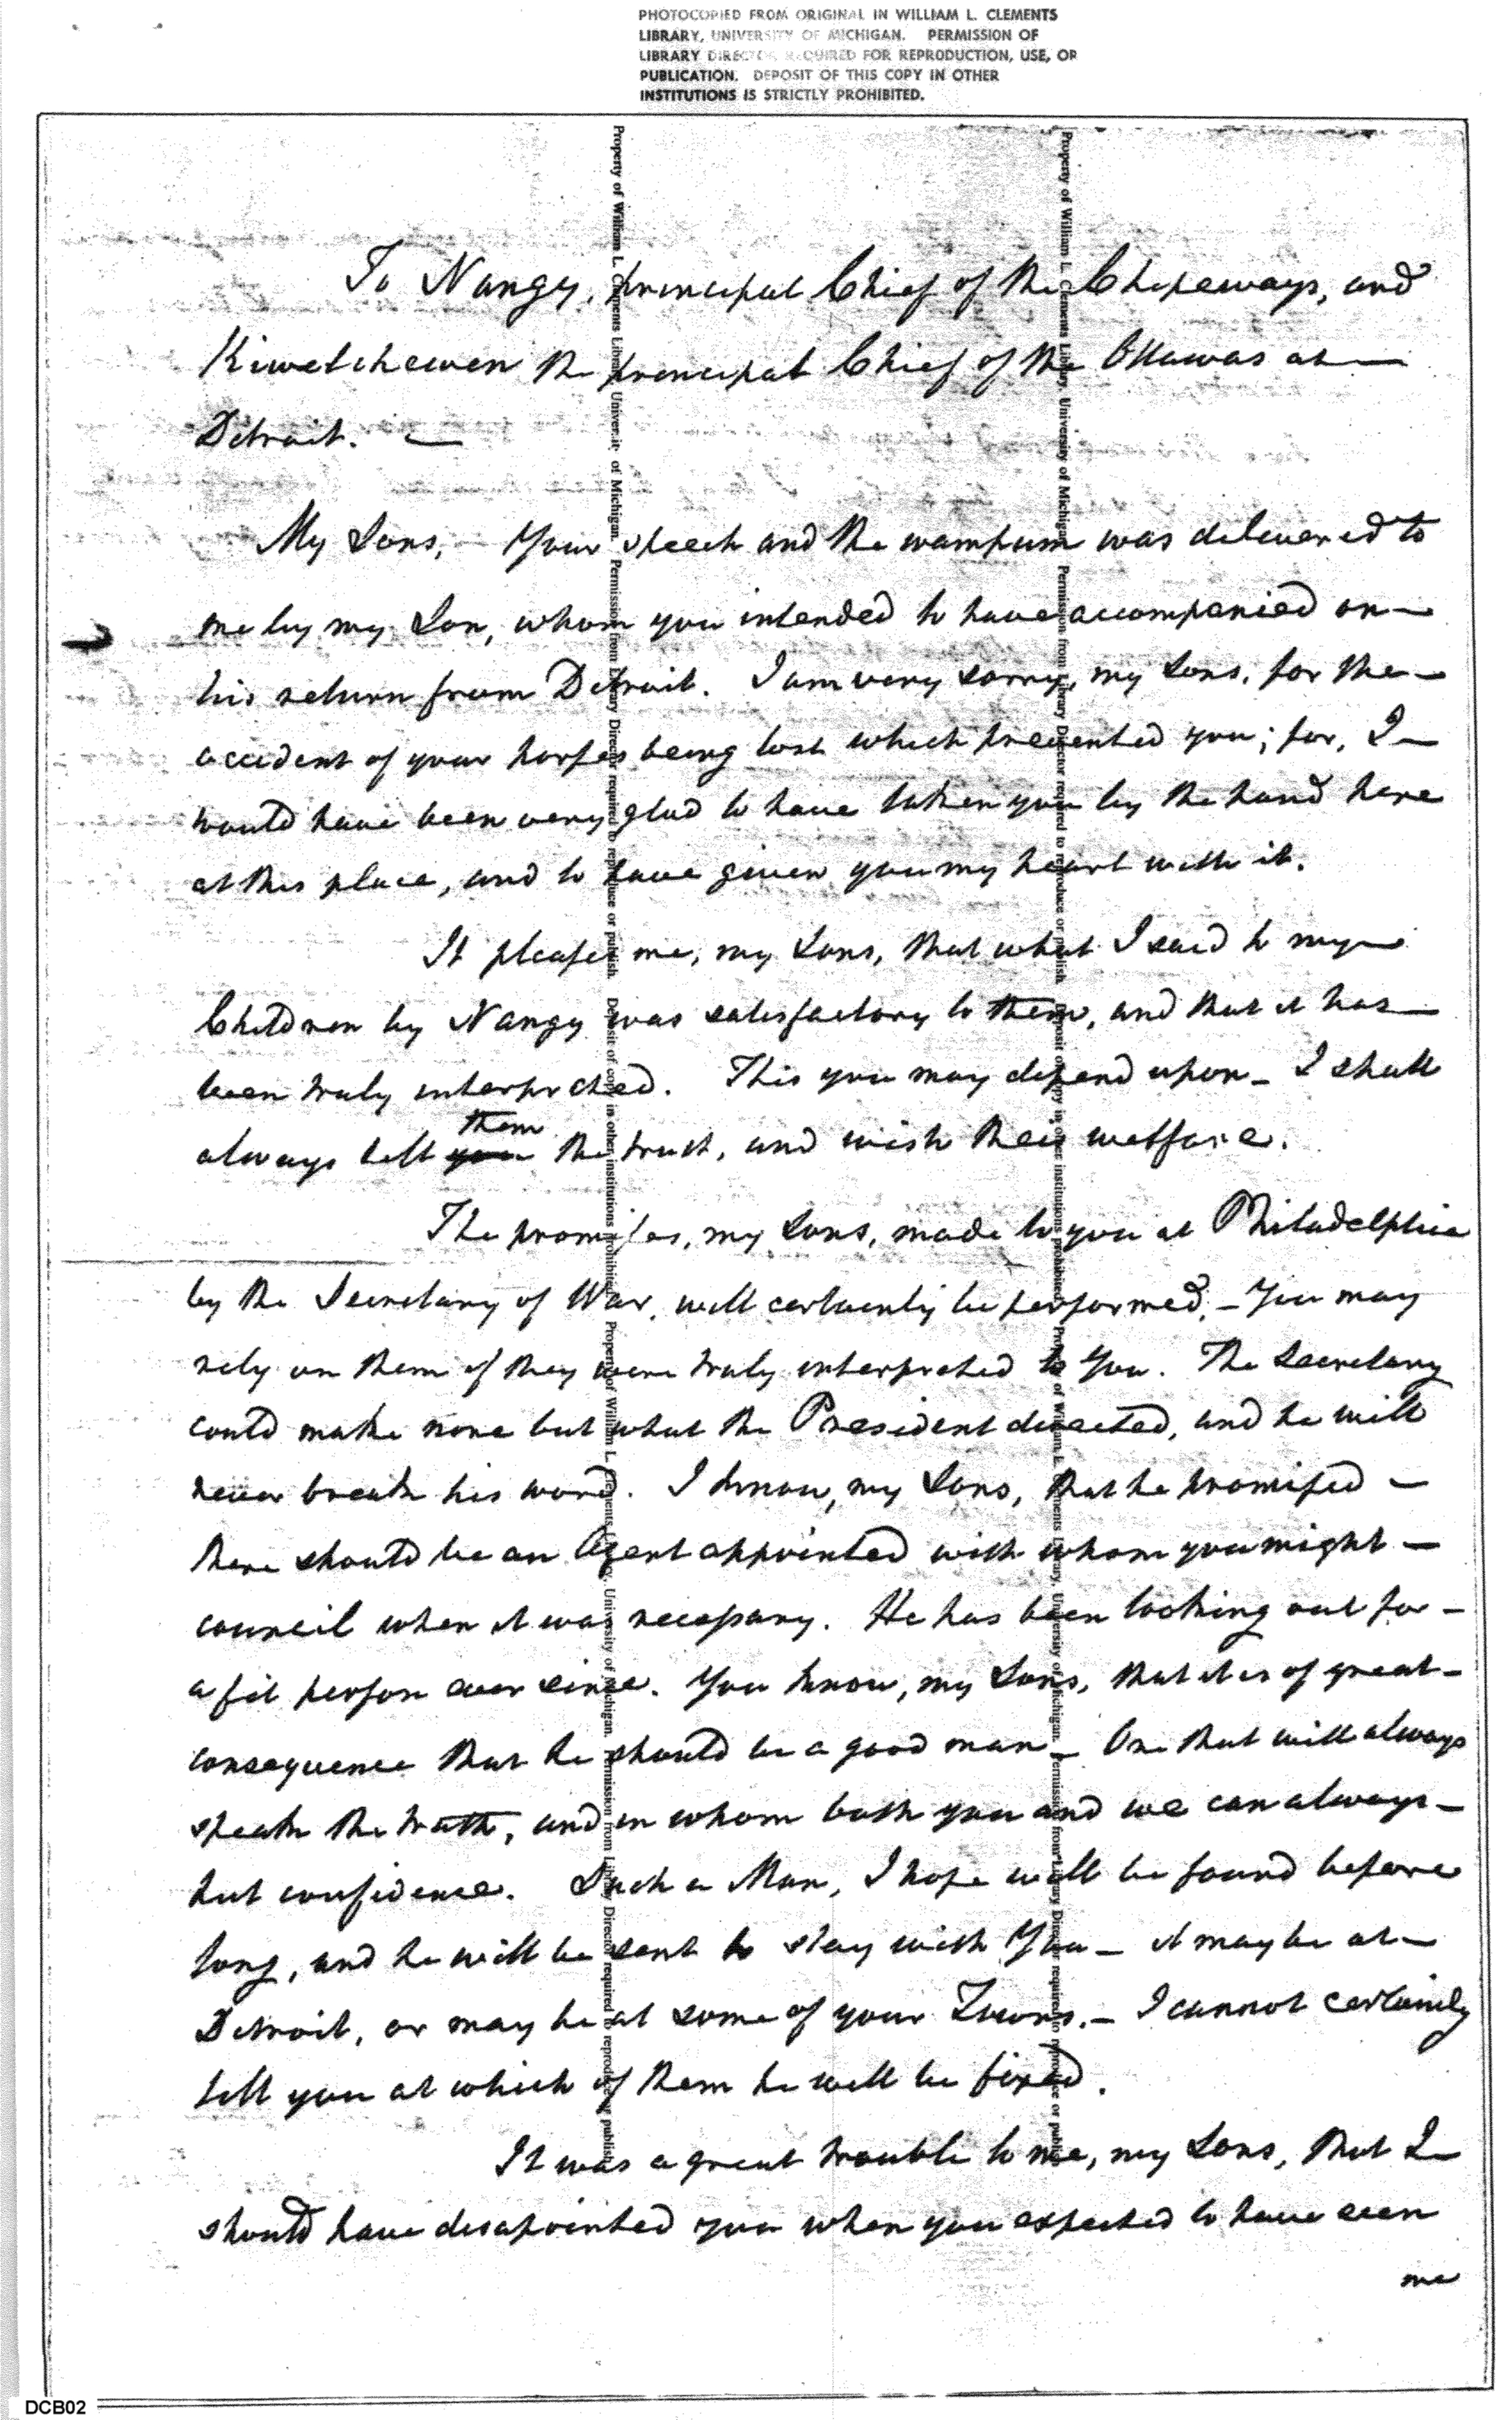 PHOTOCOPIED FROM ORIGINAL IN WILLIAM L. CLEMENTS
LIBRARY, UNIVERSITY OF MICHIGAN. PERMISSION OF
LIBRARY DIRECTOR REQUIRED FOR REPRODUCTION, USE, OR
PUBLICATION. DEPOSIT OF THIS COPY IN OTHER
INSTITUTIONS IS STRICTLY PROHIBITED.
To Nangy, principal Chief of the Chipeways, and
Kiwetchewen the principal Chief of the Ottawas at
Detroit. —
My Sons, Your speech and the wampum was delivered to
me by my Son, whom you intended to have accompanied on
his return from Detroit. I am very sorry, my Sons, for the
accident of your horses being lost which prevented you; for, I
would have been very glad to have taken you by the hand here
at this place, and to have given you my heart with it.
It pleases me, my Sons, that what I said to my
Children by Nangy was satisfactory to them, and that it has
been truly interpreted. This you may depend upon — I shall
always tell you them the truth, and wish their welfare.
The promises, my Sons, made to you at Philadelphia
by the Secretary of War, will certainly be performed, — You may
rely on them if they were truly interpreted to You. The Secretary
could make none but what the President directed, and he will
never break his word. I know, my Sons, that he promised —
there should be an Agent appointed with whom you might —
council when it was necessary. He has been looking out for —
a fit person ever since. You know, my Sons, that it is of great —
consequence that he should be a good man — One that will always
speak the truth, and in whom both you and we can always —
put confidence. Such a Man, I hope will be found before
long, and he will be sent to stay with You — it may be at —
Detroit, or may be at some of your Towns. — I cannot certainly
tell you at which of them he will be fixed.
It was a great trouble to me, my Sons, that I
should have disapointed you when you expected to have seen
me
Property of William L. Clements Library, University of Michigan. Permission from Library Director required to reproduce or publish. Deposit of copy in other institutions prohibited.
Property of William L. Clements Library, University of Michigan. Permission from Library Director required to reproduce or publish.
Property of William L. Clements Library, University of Michigan. Permission from Library Director required to reproduce or publish. Deposit of copy in other institutions prohibited.
Property of William L. Clements Library, University of Michigan. Permission from Library Director required to reproduce or publish.
DCB02